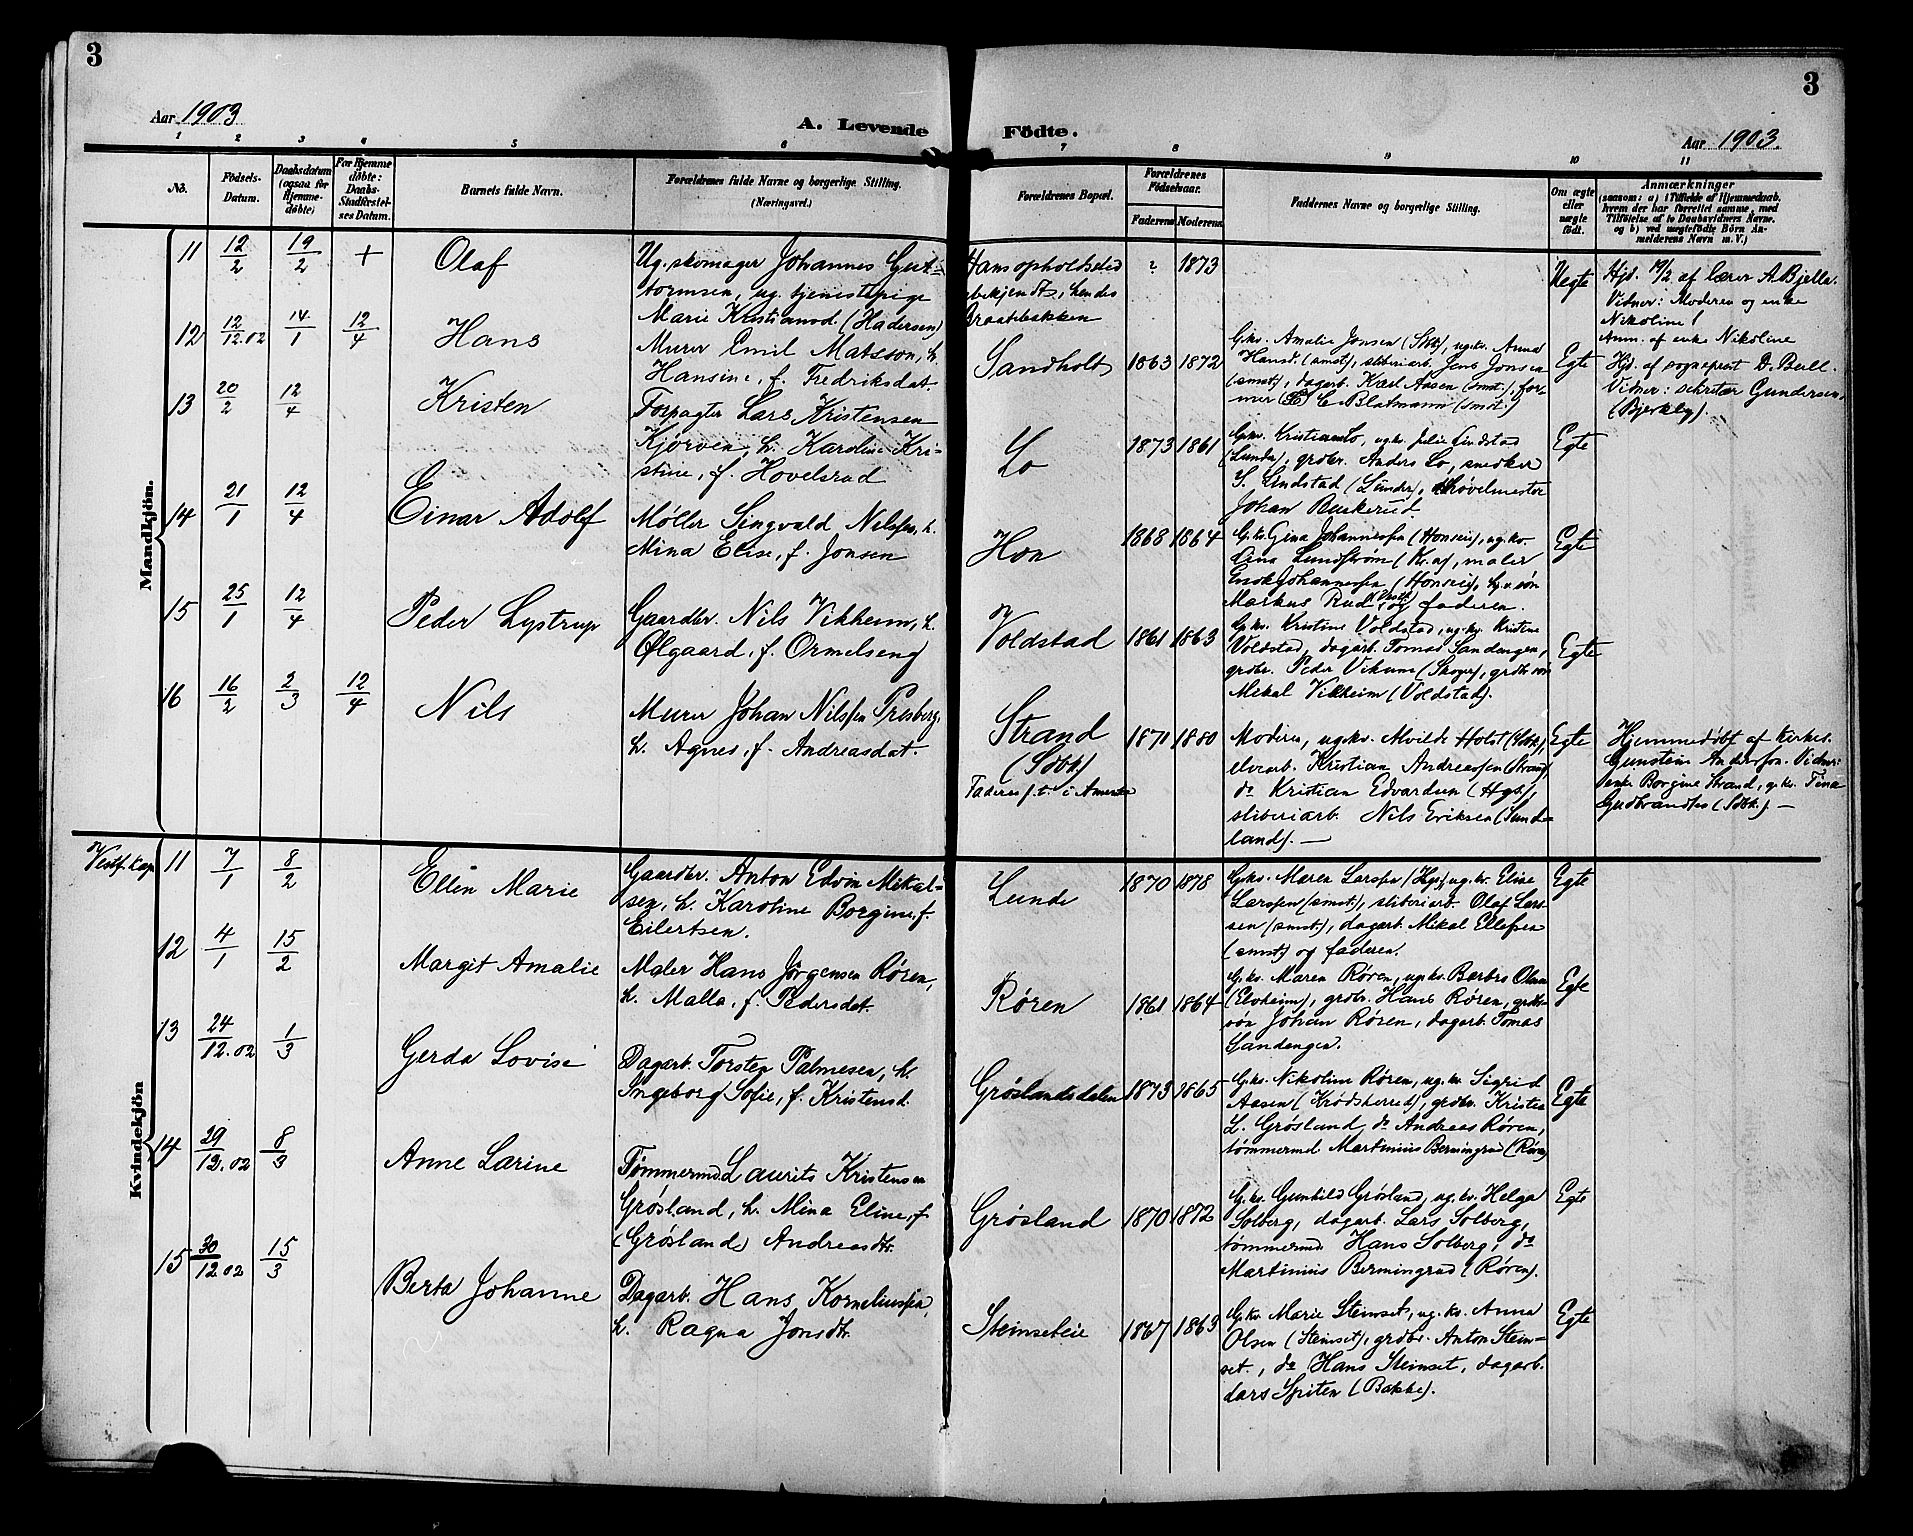 3
3
Aar 1903
A. Levende Födte.
Aar 1903.
1 2 3 4 5 6 7 8 9 10 11
No.
Födsels-Datum.
Daabsdatum (ogsaa for Hjemme-döbte)
For Hjemme döbte: Daabs-Stadfæstel-ses Datum.
Barnets fulde Navn.
Forældrenes fulde Navne og borgerlige Stilling.
(Næringsvei.)
Forældrenes Bopæl.
Forældrenes Födselsaar.
Faderens
Moderens
Faddernes Navne og borgerlige Stilling.
Om ægte eller uægte födt.
Anmærkninger
(saasom: a) i Tilfælde af Hjemmedaab, hvem der har forrettet samme, med Tilföielse af to Daabsvidners Navne. og b) ved uægtefödte Börn An-melderens Navn m. V.)
Mandkjön.
11 12/2 19/2 + Olaf
Ug. skomager Johannes Gut-
tormsen, ug. tjenestepige
Marie Kristiansd. (Hadersen)
Hans opholdssted
ubekjendt, hendes
Braatebakken
? 1873
Uegte
Hjd. 19/2 af lærer A. Bjella.
Vidner: Moderen og enke
Nikoline
Anm. af enke Nikoline
12 12/12.02 14/1 12/4 Hans
Murer Emil Matsson, h.
Hansine, f. Fredriksdat.
Sandholt 1863 1872
G.ks. Amalie Jonsen (Sbk), ug.kv. Anna
Hansd. (smst), sliberiarb. Jens Jonsen
(smst), dagarb. Karl Aasen (smst.), for-
mer C. Blatmann (smst.)
Egte
Hjd. af sogneprest D. Bull.
Vidner: sekretær Gundersen,
(Bjerkly).
13 20/2 12/4 Kristen
Forpagter Lars Kristensen
Kjørven, h. Karoline Kri-
stine, f. Hovelsrud
Lo 1873 1861
G.kv. Kristian Lo, ug.kv. Julie Lindstad
(Lunder), grdbr. Anders Lo, snedker
S. Lindstad (Lunder), høvelmester
Johan Buskerud
Egte
14 21/1 12/4 Einar Adolf
Møller Singvald Nilssen, h.
Mina Elise, f. Jonsen
Hon 1868 1864
G.ks. Gina Johannessen (Honseie), ug.kv.
Lundstrøm (Kr.a), maler
Enok Johannessen (Honseie), søn
Markus Rud og faderen.
Egte
15 25/1 12/4 Peder Lystrup
Gaardbr. Nils Vikheim, h.
Ølgaard, f. Ormelseng
Voldstad 1861 1863
G.ks. Kristine Voldstad, ug.kv. Kristine
Voldstad, dagarb. Tomas Sandengen,
grdbr. Peder Vikum (Skoger), grdbr.søn
Mikal Vikheim (Voldstad).
Egte
16 16/2 2/3 12/4 Nils
Murer Johan Nilssen Presberg,
h. Agnes, f. Andreasdat.
Strand
(Sbk)
Faderen f.t. i Amerika
1871 1880
Moderen, ug.kv. Alvilde Holst (Sbk),
elvearb. Kristian Andreassen (Strand),
do Kristian Edvardsen (Hgb),
sliberiarb. Nils Eriksen (Sund-
land). —
Egte
Hjemmedøbt af kirkes.
Gunstein Anderssen. Vidner:
enke Borgine Strand, g.kv. Tina
Gudbrandsen (Sbk.) —
Kvindekjön
Vestf. kap 11 7/1 8/2 Ellen Marie
Gaardbr. Anton Edvin Mikal-
sen, h. Karoline Borgine, f.
Eilertsen.
Lunde 1870 1878
G.ks. Maren Larssen (Hgs), ug.kv. Eline
Larssen (smst), sliberiarb. Olaf Lars-
sen (smst), dagarb. Mikal Ellefsen
(smst) og faderen.
Egte
12 4/1 15/2 Margit Amalie
Maler Hans Jørgensen Røren,
h. Malla, f. Pedersdat.
Røren 1861 1864
G.ks. Maren Røren, ug.kv. Barbro Olsen
(Elvheim), grdbr. Hans Røren, grdbr.
søn Johan Røren, dagarb. Tomas
Sandengen.
Egte
13 24/12.02 1/3 Gerda Lovise
Dagarb. Torsten Palmesen, h.
Ingeborg Sofie, f. Kristensd.
Grøslandsdalen 1873 1865
G.ks. Nikoline Røren, ug.kv. Sigrid
Aasen (Krødsherred), grdbr. Kristian
L. Grøsland, do Andreas Røren,
tømmermd Martinius Bermingrud (Røren)
Egte
14 29/12.02 8/3 Anne Larine
Tømmermd. Laurits Kristensen
Grøsland, h. Mina Eline, f.
(Grøsland) Andreasdtr.
Grøsland 1870 1872
G.ks. Gunhild Grøsland, ug.kv. Helga
Solberg, dagarb. Lars Solberg,
tømmermd. Hans Solberg, do
Martinius Bermingrud (Røren).
Egte
15 30/12.02 15/3 Berta Johanne
Dagarb. Hans Korneliussen,
h. Ragna Jonsdtr.
Steinseteie 1867 1863
G.kv. Marie Steinset, ug.kv. Anna
Olsen (Steinset), grdbr. Anton Stein-
set., do Hans Steinset, dagarb.
Lars Spiten (Bakke).
Egte